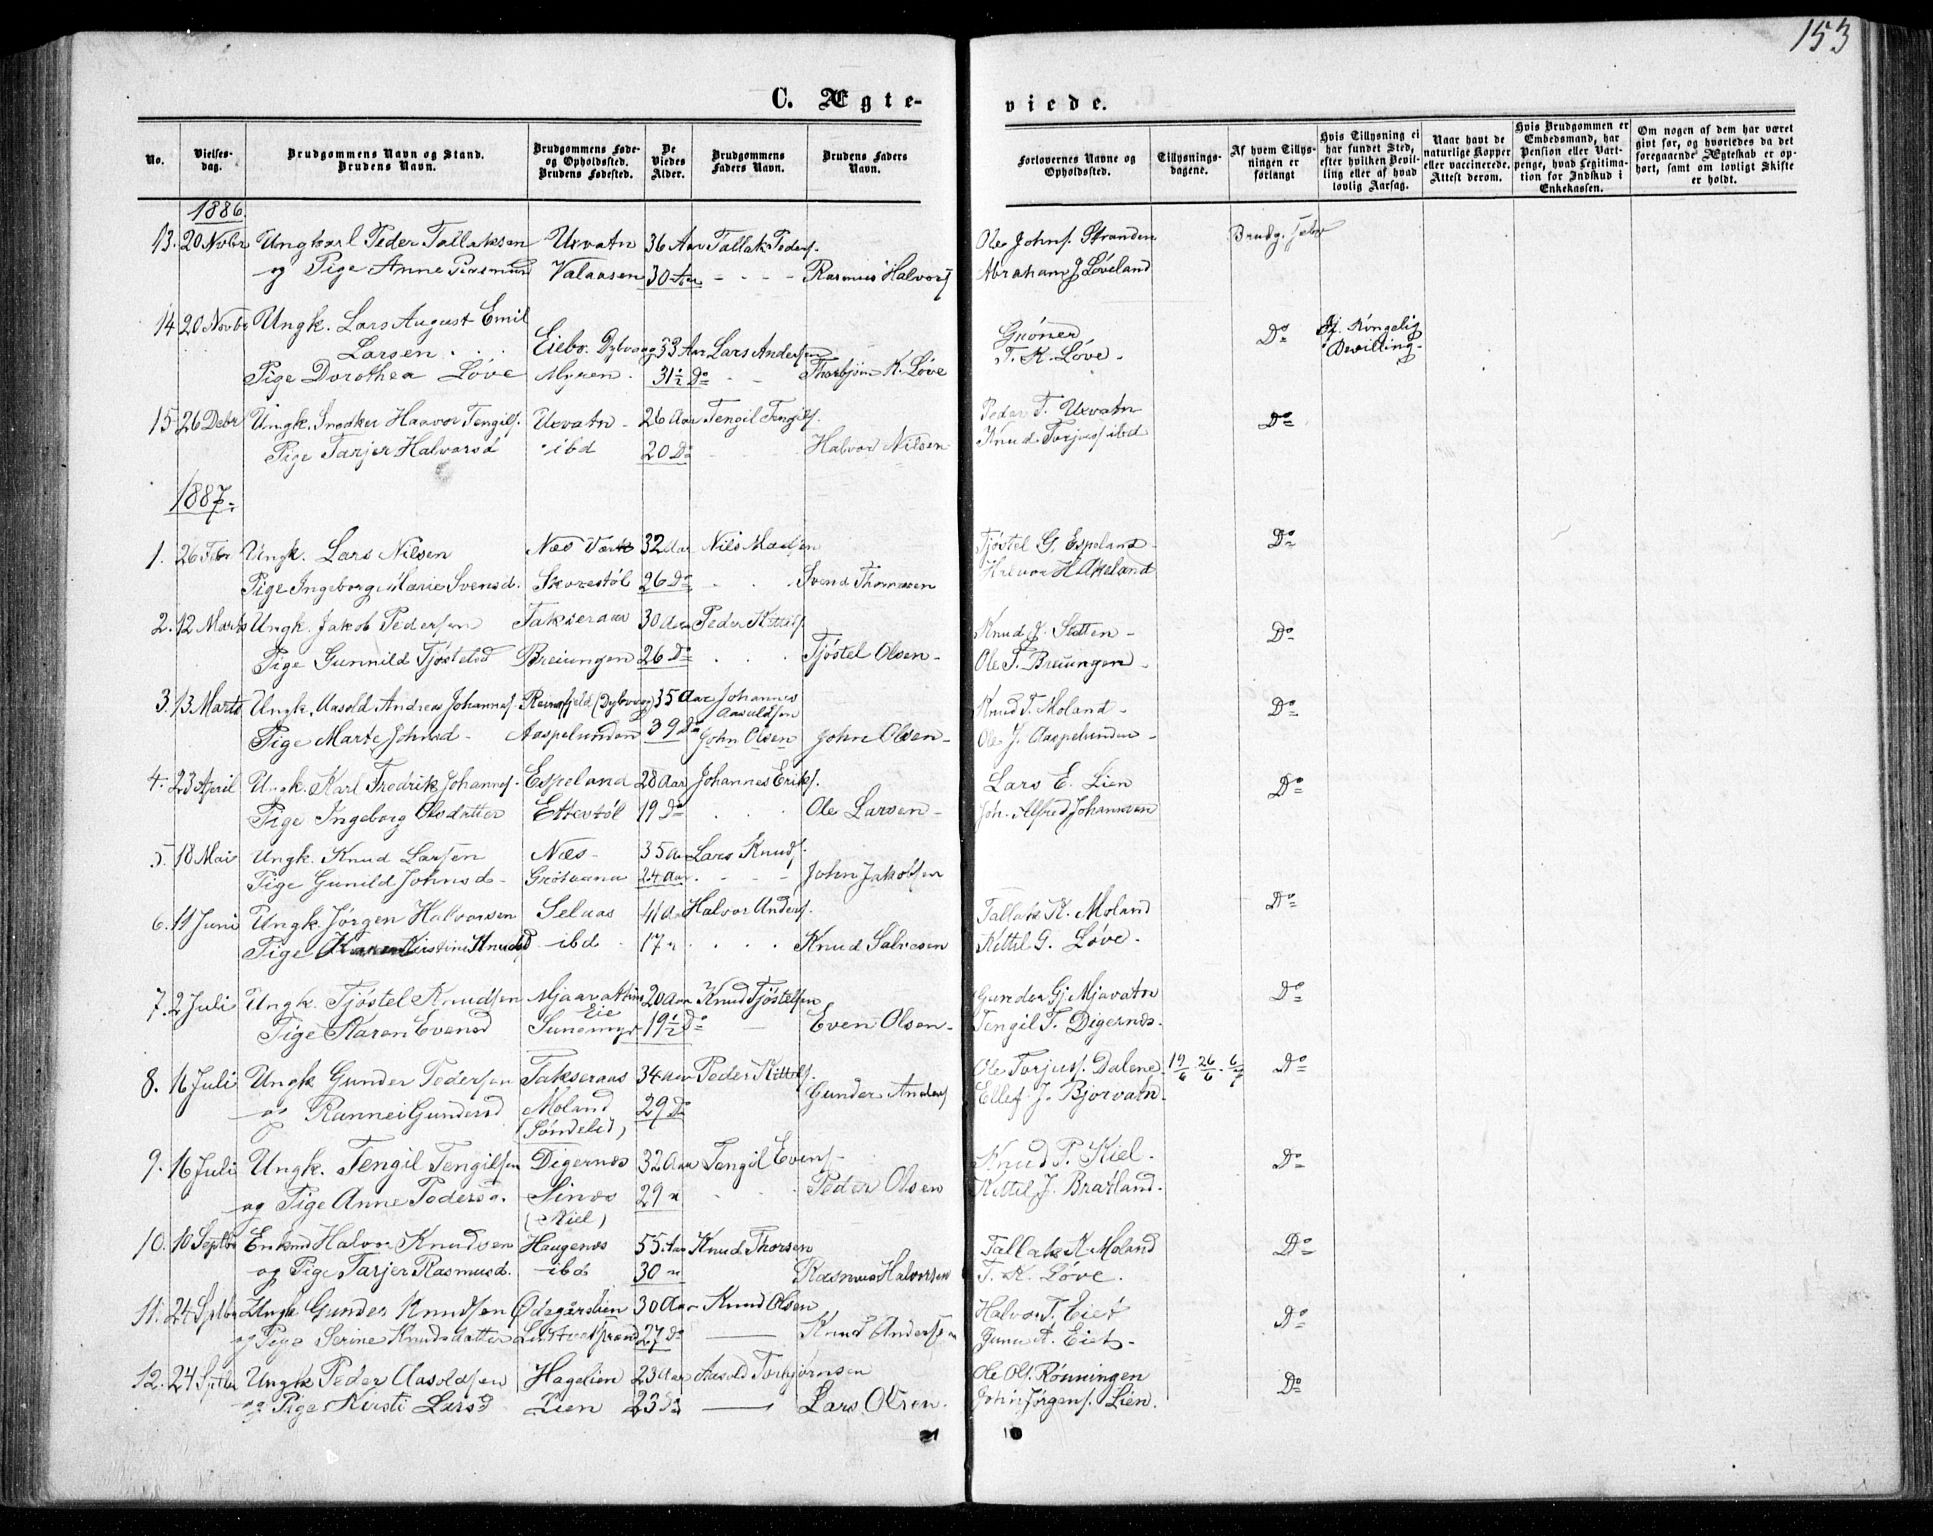 153
C. Ægte-
viede.
No.
Vielses-
dag.
Brudgommens Navn og Stand.
Brudens Navn.
Brudgommens Føde-
og Opholdssted.
Brudens Fødested.
De
Viedes
Alder.
Brudgommens
Faders Navn.
Brudens Faders
Navn.
Forlovernes Navne og
Opholdssted.
Tillysnings-
dagene.
Af hvem Tillys-
ningen er
forlangt
Hvis Tillysning ei
har fundet Sted,
efter hvilken Bevil-
ling eller af hvad
lovlig Aarsag.
Naar havt de
naturlige Kopper
eller vaccinerede.
Attest derom.
Hvis Brudgommen er
Embedsmand, har
Pension eller Vart-
penge, hvad Legitima-
tion for Indskud i
Enkekassen.
Om nogen af dem har været
givt før, og hvorledes da det
foregaaende Ægteskab er op-
hørt, samt om lovligt Skifte
er holdt.
1886.
13. 20 Novbr Ungkarl Peder Tallaksen Uxvatn 36 Aar Tallak Peders. Ole Johns. Stranden Brudg. Selv
og Pige Anne Rasmusd Valaasen 30 Aar Rasmus Halvors. Abraham J Løveland
14 20 Novbr Ungk. Lars August Emil
Larsen Eiebo. Dybvaag 33 Aar Lars Andersen Grøner Do Kongelig
Pige Dorothea Løve Myren. 31 1/2 Do Thorbjørn K. Løve T. K. Løve. Bevilling.
15 26 Debr Ungk. Haavor Tengils. Uxvatn 26 Aar Tengil Tengils. Peder T. Uxvatn Do
Pige Tarjer Halvorsd ibd 20 Do Halvor Nilsen Knud Torjus. ibd
1887.
1. 26 Febr Ungk. Lars Nilsen Næs Værk 32 Aar Nils Madsen Tjøstel G. Espeland Do
Pige Ingeborg Marie Svensd. Skorestøl 26 Do Svend Thomasen Halvor H Akeland
2. 12 Marts Ungk. Jakob Pedersen Takseraas 30 Aar Peder Kittels. Knud J. Sletten Do
Pige Gunnild Tjøstelsd Breiungen 26 Do Tjøstel Olsen Ole T. Breiungen
3. 13 Marts Ungk. Aasold Andreas Johannes. (Dybvaag) 35 Aar Johannes
Aasoldsen Knud T. Moland Do
Pige Marte Johnsd Aaspelunden 39 Do John Olsen John Olsen Ole J. Aaspelunden
4. 23 April Ungk. Karl Fredrik Johannes. Espeland 28 Aar Johannes Eriks. Lars E. Lien Do
Pige Ingeborg Olsdatter Ettestøl 19 Do Ole Larsen Joh. Alfred Johannesen
5. 18 Mai Ungk. Knud Larsen Næs 35 Aar Lars Knuds.
Pige Gunild Johnsd 24 Aar John Jakobsen
6. 11 Juni Ungk. Jørgen Halvorsen Selaas 41 Aar Halvor Anders. Tallak K. Moland Do
Pige Kirstine Knudsd ibd 17 " Knud Salvesen Kittil G. Løve
7. 2 Juli Ungk. Tjøstel Knudsen Mjaavatns
Eie 20 Aar Knud Tjøstelsen Gunder Gj. Mjavatn Do
Pige Karen Evensd Sunemyr 19 1/2 Do Even Olsen Tengil T. Digernes
8. 16 Juli Ungk Gunder Pedersen Takseraas 34 Aar Peder Kittels. Ole Torjus. Dalene 19/6 26/6 6/7 Do
og Rannei Gundersd Moland 29 Do Gunder Anders. Ellef J. Bjorvatn
(Søndeled)
9. 16 Juli Ungk. Tengil Tengilsen Digernes 32 Aar Tengil Evens. Knud P. Kiel Do
og Pige Anne Pedersd. Sines 29 " Peder Olsen Kittil J. Bratland
(Kiel)
10. 10 Septbr Enkmd Halvor Knudsen Haugenes 55 Aar Knud Thorsen Tallak K Moland Do
og Pige Tarjer Rasmusd. ibd 30 " Rasmus Halvorsen T. K. Løve.
11. 24 Sptbr Ungk Gunder Knudsen Ødegårslien 30 Aar Knud Olsen Halvor T. Eiet Do
og Pige Serine Knudsdatter 27 Do Knud Andersen A. Eiet
12. 24 Sptbr Ungk Peder Aasoldsen Hagelien 23 Aar Aasold Torbjørnsen Ole Ols. Rønningen Do
og Pige Kirsti Larsd Lien 23 Do Lars Olsen. John Jørgens. Lien.